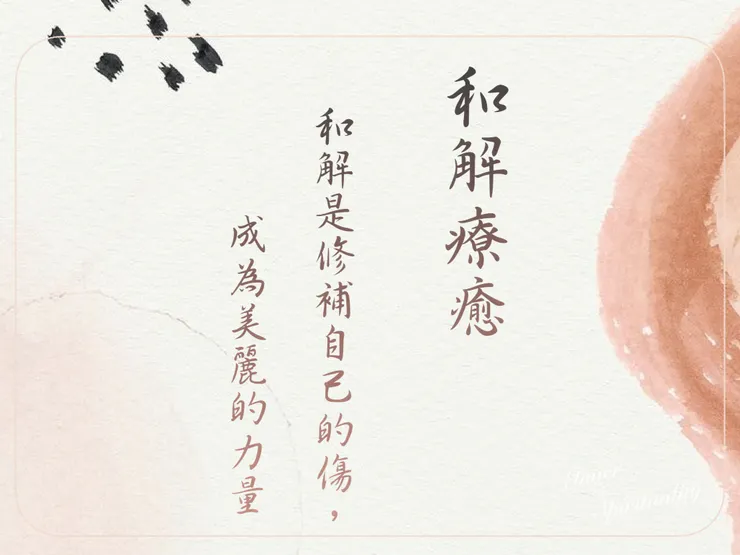 和解療癒
和解是修補自己的傷，
成為美麗的力量